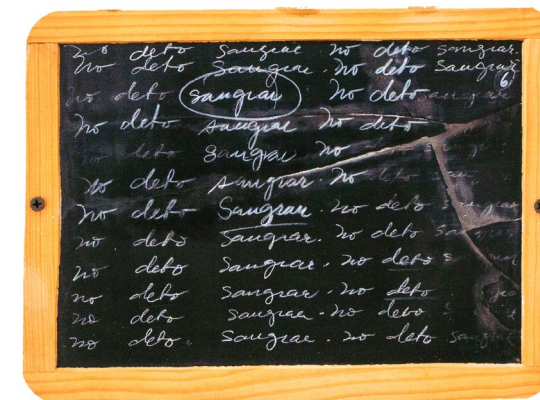 no debo sangrar no debo sangrar.
No debo Sangrar. No debo Sangrar
6
No debo sangrar No debo sangrar
No debo sangrar No debo
no debo sangrar no
No debo sangrar. No debo
No debo Sangrar. no debo
no. debo Sangrar. no debo
no debo Sangrar. no debo
no debo sangrar. no debo
no debo sangrar. no debo
no debo. Sangrar. no debo Sangrar